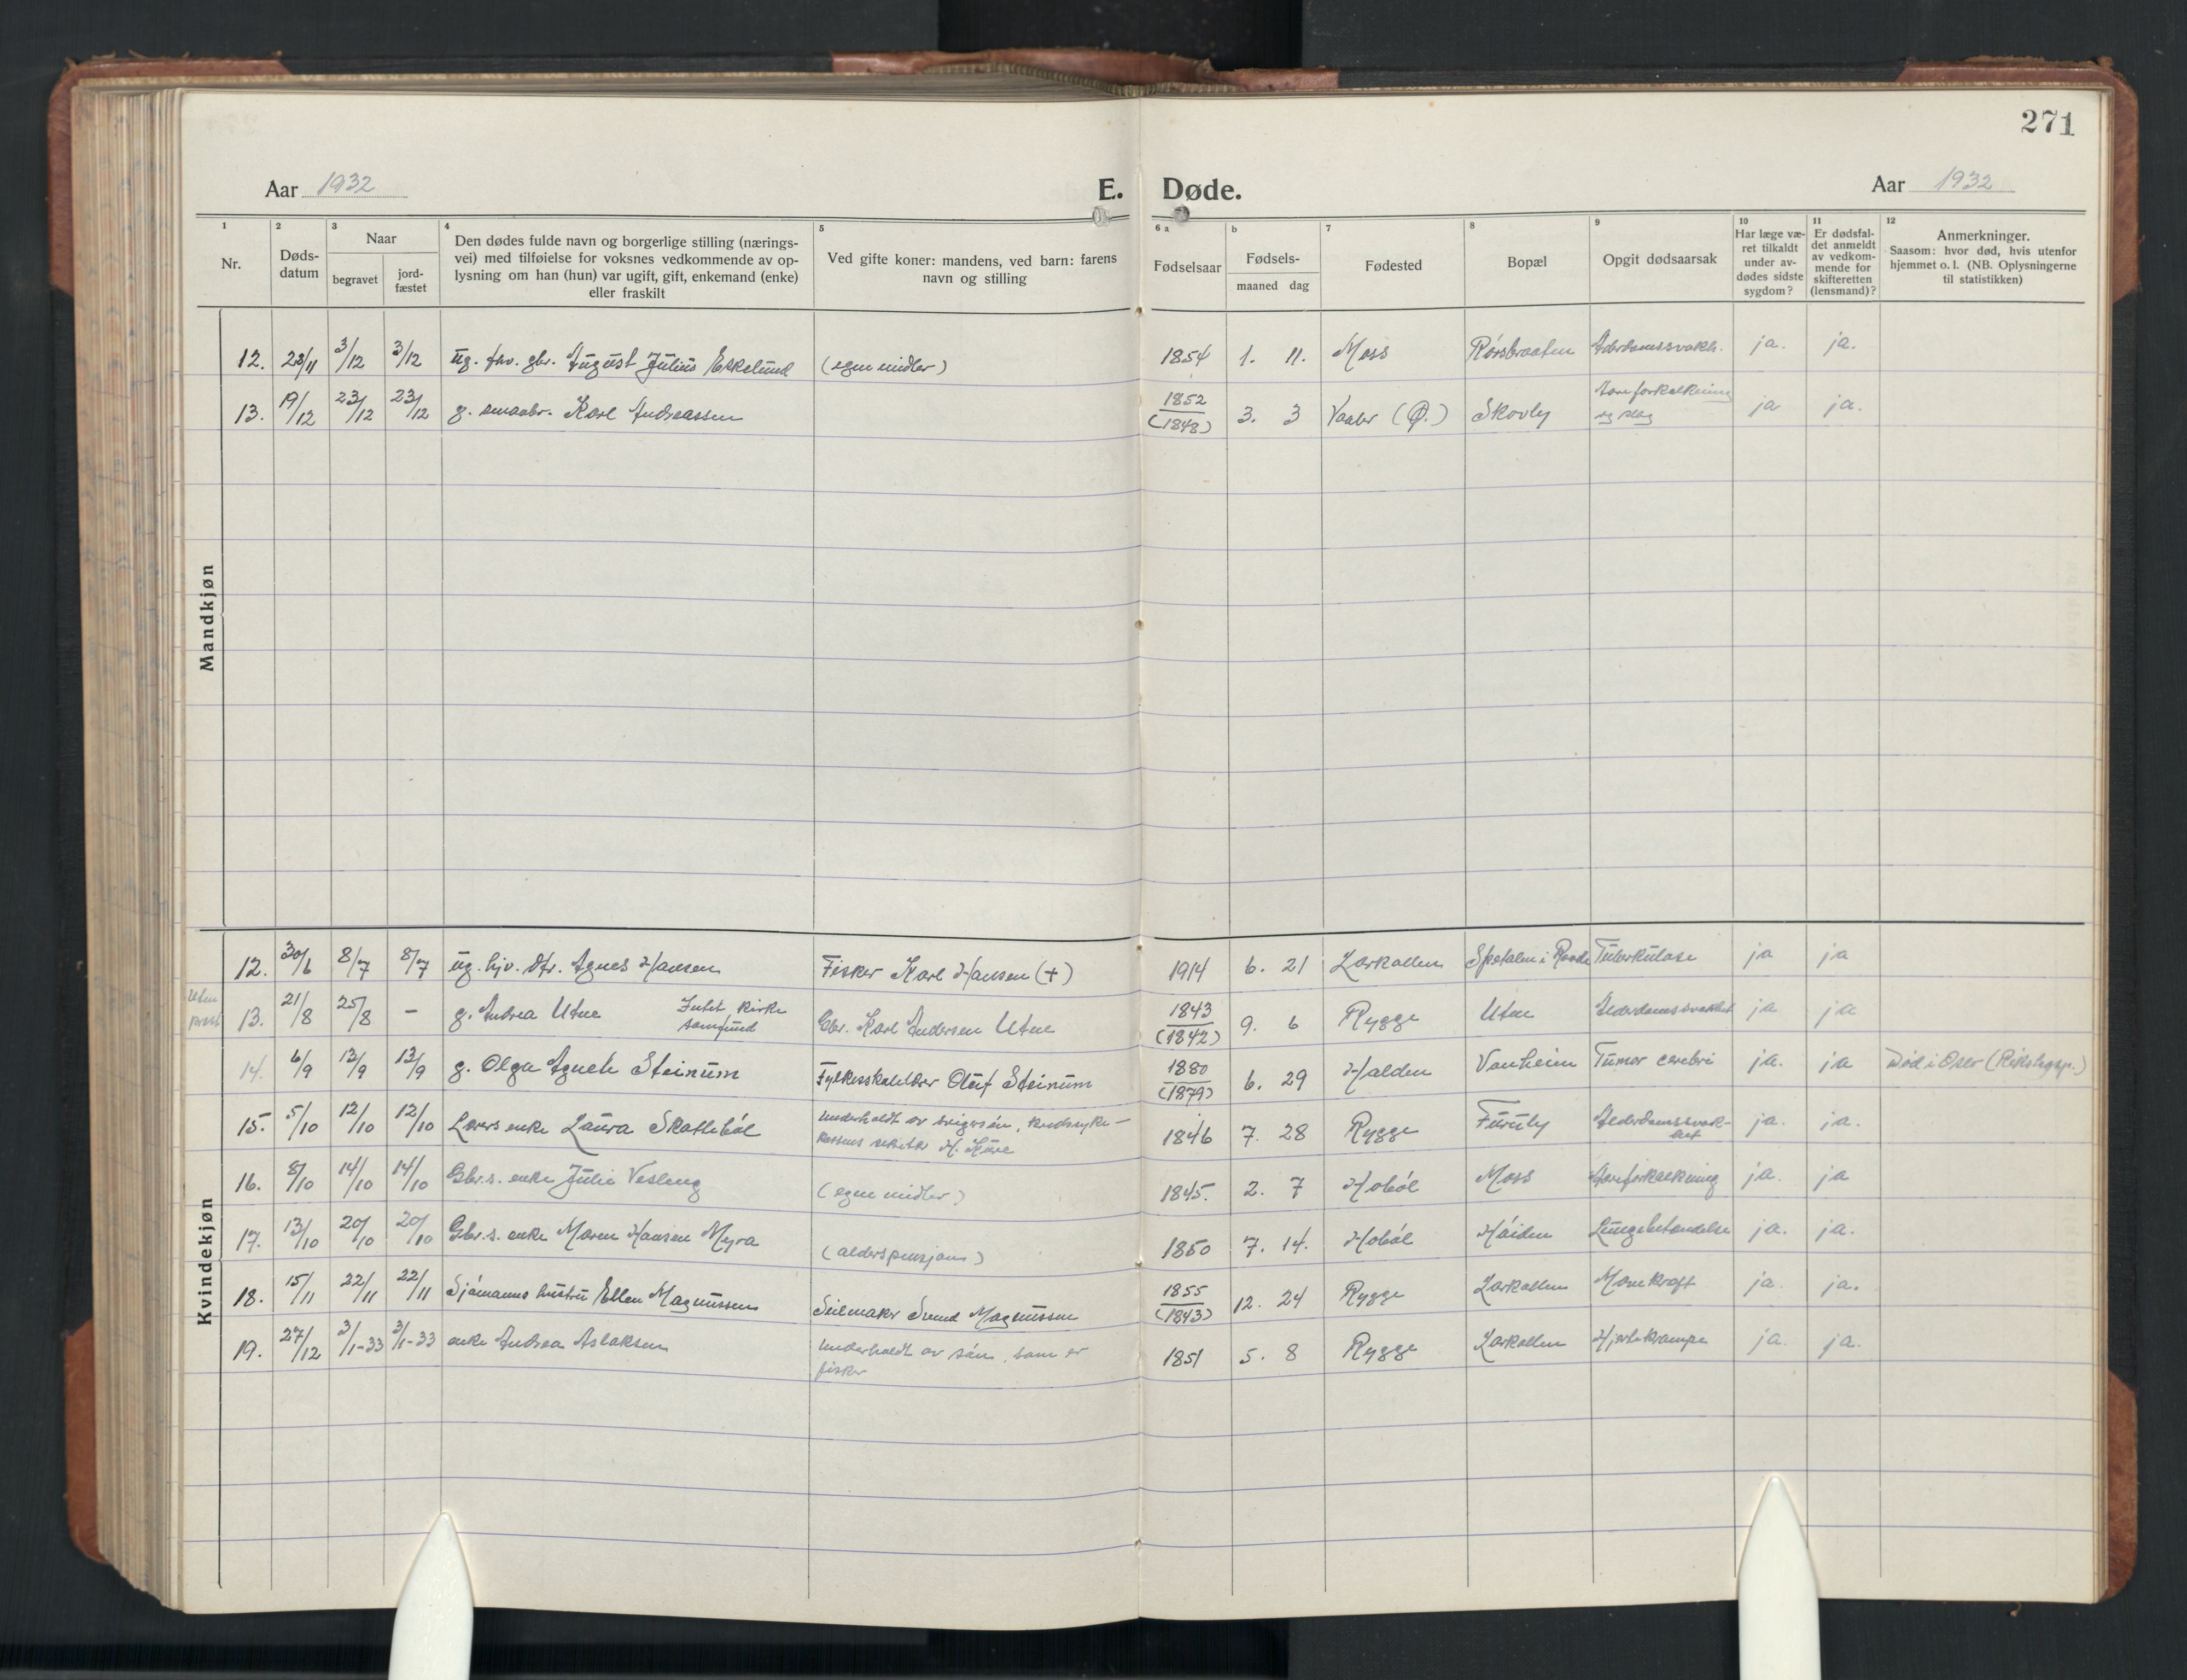 271
Aar 1932 E. Døde. Aar 1932
1 2 3 4 5 6 a b 7 8 9 10 11 12
Nr.
Døds-
datum
Naar
begravet
jord-
fæstet
Den dødes fulde navn og borgerlige stilling (nærings-
vei) med tilføielse for voksnes vedkommende av op-
lysning om han (hun) var ugift, gift, enkemand (enke)
eller fraskilt
Ved gifte koner: mandens, ved barn: farens
navn og stilling
Fødselsaar
Fødsels-
maaned dag
Fødested
Bopæl
Opgit dødsaarsak
Har læge væ-
ret tilkaldt
under av-
dødes sidste
sygdom?
Er dødsfal-
det anmeldt
av vedkom-
mende for
skifteretten
(lensmand)?
Anmerkninger.
Saasom: hvor død, hvis utenfor
hjemmet o. l. (NB. Oplysningerne
til statistikken)
Mandkjøn
12. 28/11 3/12 3/12 ug. fhv. gbr. August Julius Eskelund (egne midler) 1854 1. 11. Moss Rörsbraaten ja. ja.
13. 19/12 23/12 23/12 g. smaabr. Karl Andreassen 1852 (1848) 3. 3 Vaaler (Ø.) Skovly Aareforkalkning og slag ja ja.
Kvindekjøn
12. 30/6 8/7 8/7 ug. hjv. dtr. Agnes Hansen Fisker Karl Hansen (+) 1914 6. 21 Larkollen Spetalen i Raade Tuberkulose ja ja
Uten prest 13. 21/8 25/8 - g. Andrea Utne Intet kirke samfund Gbr. Karl Andersen Utne 1843 (1842) 9. 6 Rygge Utne Alderdomssvakhet ja ja
14. 6/9 13/9 13/9 g. Olga Agnete Steinum Fylkesskolelærer Oluf Steinum 1880 (1879) 6. 29 Halden Vanheim Tumor cerebri ja. ja Död i Oslo (Rikshosp.)
15. 5/10 12/10 12/10 Lærers enke Laura Skattebøl Underholdt av svigersön, 1846 7. 28 Rygge Furuly Alderdomssvak-
het ja. ja.
16. 8/10 14/10 14/10 Gbr.s. enke Julie Vesleng (egne midler) 1845. 2. 7 Hoböl Moss Aareforkalkning ja. ja
17. 13/10 20/10 20/10 Gbr.s. enke Maren Hansen Myra (alderspensjon) 1850 7. 14. Hoböl Höiden Lungebetændelse ja. ja.
18. 15/11 22/11 22/11 Sjömanns hustru Ellen Magnussen Seilmaker Svend Magnussen 1855 (1843) 12. 24 Rygge Larkollen Mavekræft ja. ja.
19. 27/12 3/1-33 3/1-33 enke Andrea Aslaksen Underholdt av sön, som er
fisker 1851 5. 8 Rygge Larkollen Hjertekrampe ja. ja.